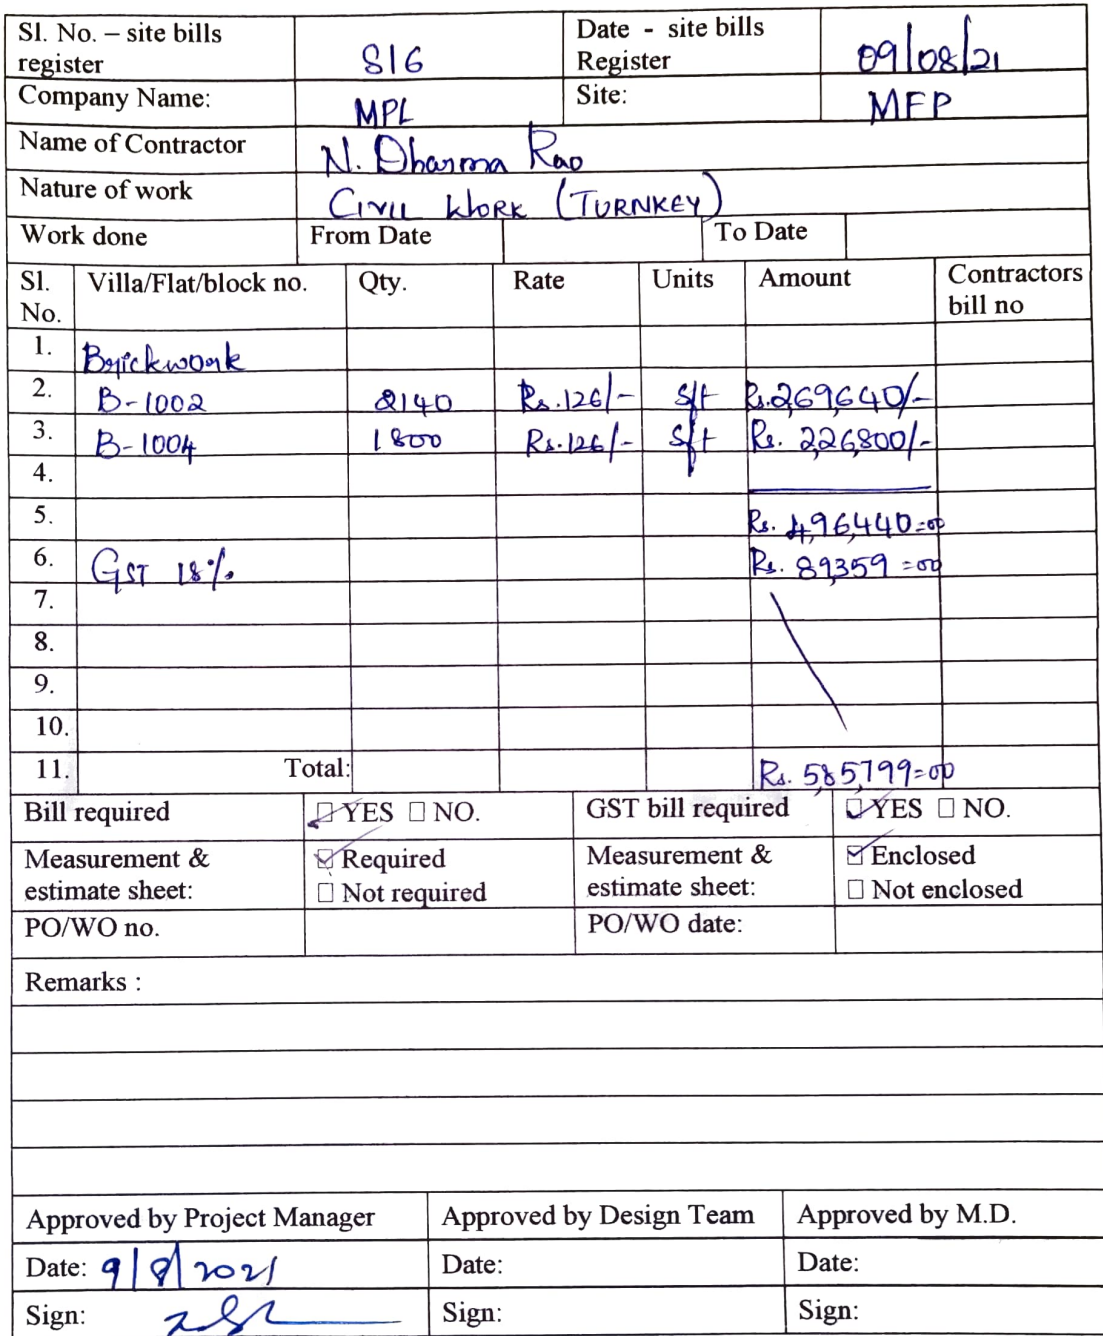 Sl. No. – site bills register 816 Date - site bills Register 09/08/21
Company Name: MPL Site: MFP
Name of Contractor N. Dharma Rao
Nature of work CIVIL WORK (TURNKEY)
Work done From Date To Date
Sl. No. Villa/Flat/block no. Qty. Rate Units Amount Contractors bill no
1. Brickwork
2. B-1002 2140 Rs.126/- Sft Rs.2,69,640/-
3. B-1004 1800 Rs.126/- Sft Rs. 2,26,800/-
4.
5. Rs. 4,96,440=00
6. GST 18% Rs. 89,359=00
7.
8.
9.
10.
11. Total: Rs. 5,85,799=00
Bill required ☑ YES ☐ NO. GST bill required ☑ YES ☐ NO.
Measurement & estimate sheet: ☑ Required ☐ Not required Measurement & estimate sheet: ☑ Enclosed ☐ Not enclosed
PO/WO no. PO/WO date:
Remarks :
Approved by Project Manager Approved by Design Team Approved by M.D.
Date: 9/8/2021 Date: Date:
Sign: Sign: Sign: